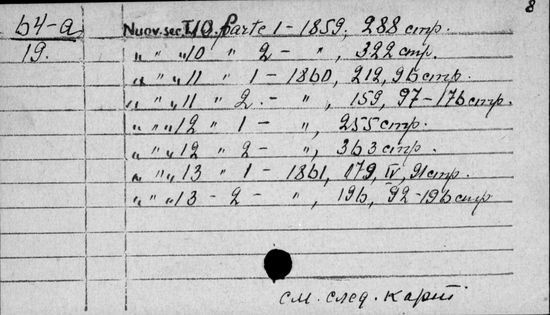 8
64-а Nuov.ser.T.10. parte 1 - 1859, 288 стр.
19. " " " 10 " 2 - ", 322 стр.
" " " 11 " 1 - 1860, 212, 96 стр.
" " " 11 " 2. - ", 159, 97-176 стр.
" " " 12 " 1 - ", 255 стр.
" " " 12 " 2 - ", 363 стр.
" " " 13 " 1 - 1861, 179, IV, 91 стр.
" " " 13 - 2 - ", 196, 92-196 стр
см. след. карт